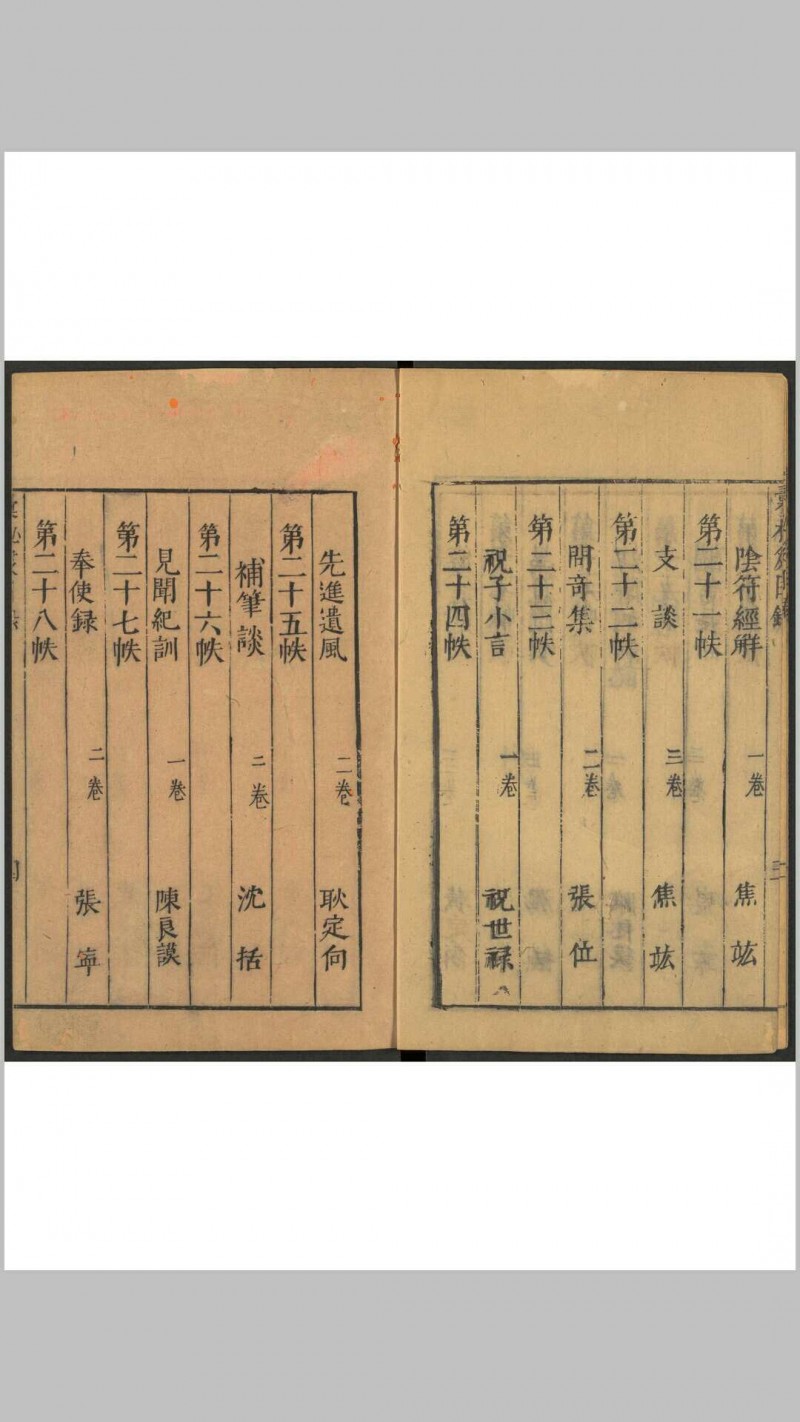 陰符經解 一卷 焦竑
第二十一帙
支談 三卷 焦竑
第二十二帙
問奇集 二卷 張位
第二十三帙
祝子小言 一卷 祝世祿
第二十四帙
先進遺風 二卷 耿定向
第二十五帙
補筆談 二卷 沈括
第二十六帙
見聞紀訓 一卷 陳良謨
第二十七帙
奉使録 二卷 張寧
第二十八帙